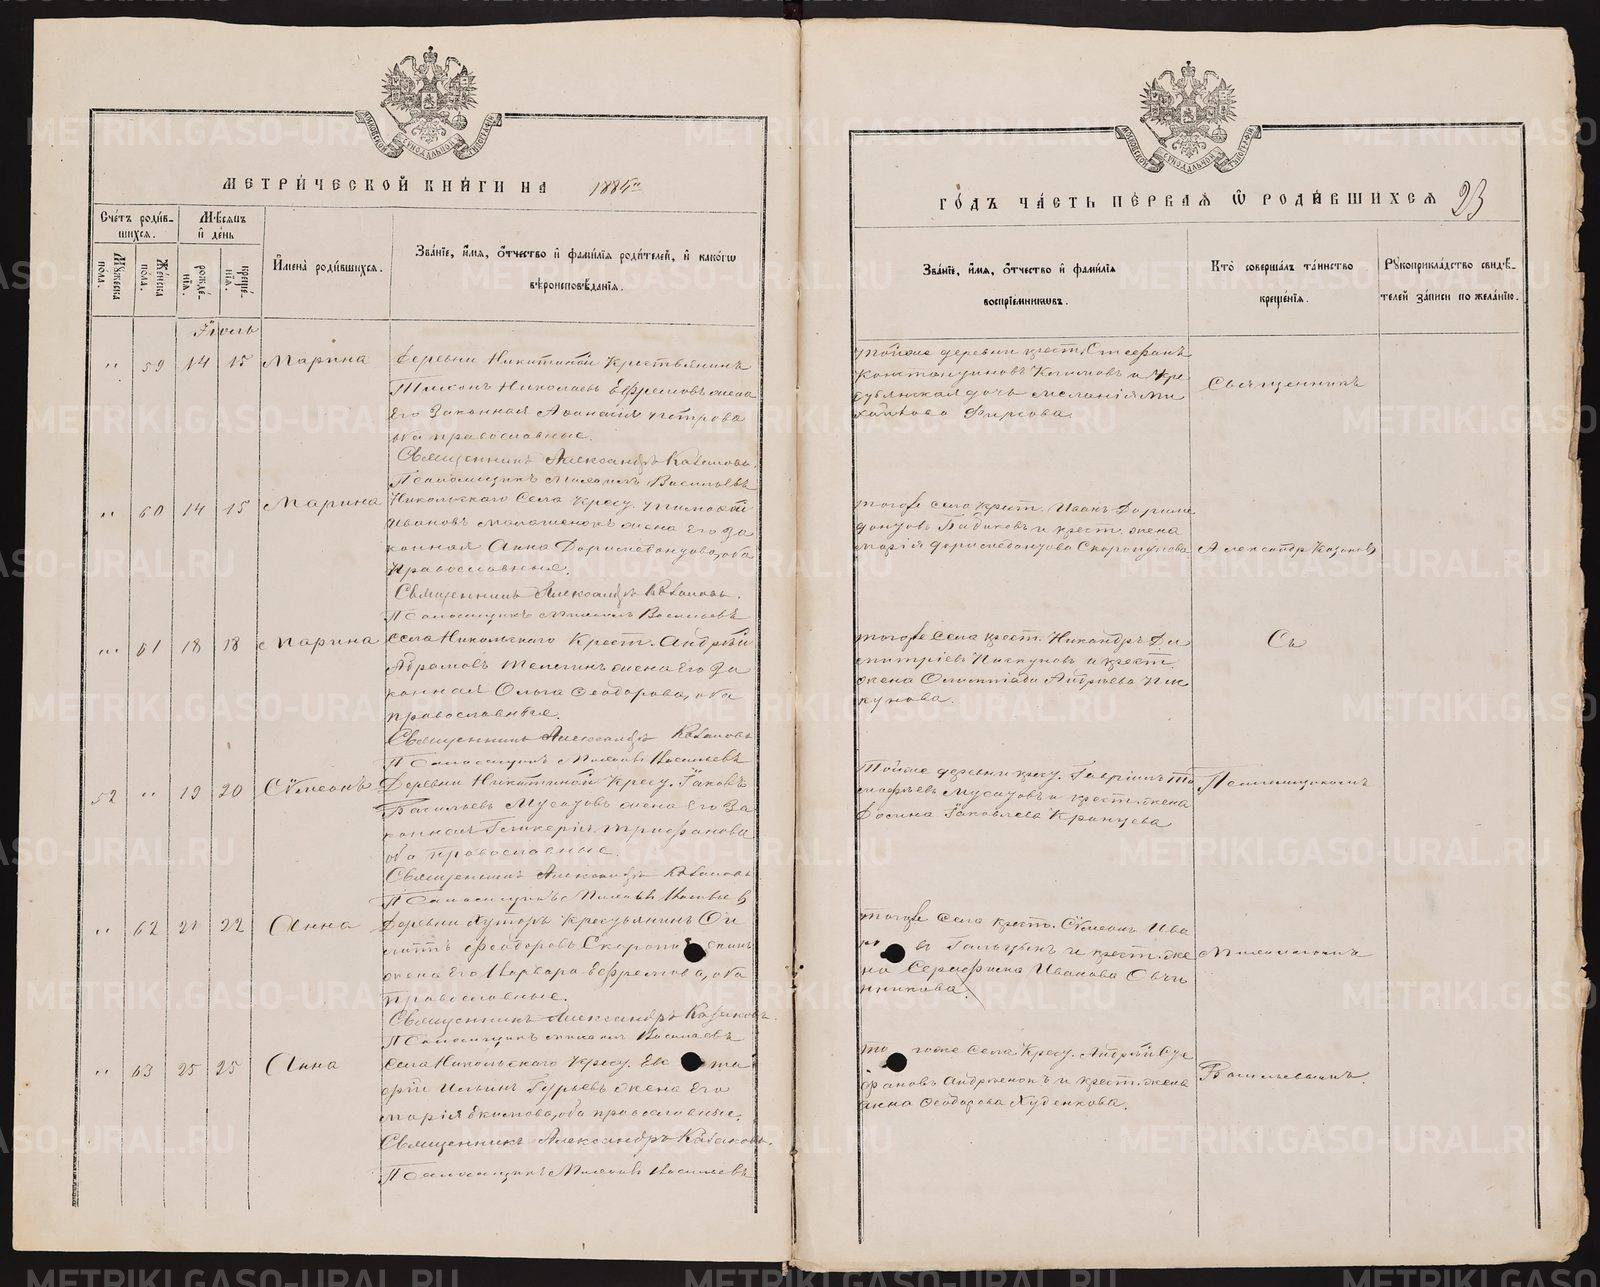 МЕТРИ́ЧЕСКОЙ КНИ́ГИ НА 1885й
Сче́тъ роди́в-
шихся.
Мѣсяцъ
и де́нь
Мꙋжеска
по́ла.
Же́нска
по́ла.
рожде́-
нїѧ.
креще́-
нїѧ.
И҆мена̀ роди́вшихсѧ.
Зва́нїе, и҆́мѧ, ѻ҆́тчество и҆ фами́лїѧ роди́телей, и҆ како́гѡ
вѣроисповѣ́данїѧ.
Іюль
" 59 14 15 Марина
Деревни Никитиной Крестьянинъ
Тихонъ Николаевъ Ефремовъ жена
Его Законная Аѳанасія Петрова
оба православные.
Священникъ Александръ Казаковъ.
Псаломщикъ Михаилъ Васильевъ
" 60 14 15 Марина
Никольскаго Села Крест. Тимоѳей
Ивановъ жена Его За
конная Анна оба
Православные.
Священникъ Александръ Казаковъ.
Псаломщикъ Михаилъ Васильевъ
" 61 18 18 Марина
Села Никольскаго Крест. Андрей
Абрамовъ Телегинъ жена Его За
конная Ольга Ѳеодорова, оба
православные.
Священникъ Александръ Казаковъ
Псаломщикъ Михаилъ Васильевъ
52 " 19 20 Сѵмеонъ
Деревни Никитиной Крест. Іаковъ
Васильевъ Мусатовъ жена Его За
конная Гликерія Трифонова
оба православные.
Священникъ Александръ Казаковъ
Псаломщикъ Михаилъ Васильевъ
" 62 21 22 Анна
Деревни Хуторъ Крестьянинъ Фи
липпъ Ѳеодоровъ
жена Его Варвара Ефремова, оба
Православные.
Священникъ Александръ Казаковъ.
Псаломщикъ Михаилъ Васильевъ
" 63 25 25 Анна
Села Никольскаго Крест.
Ильинъ Гурьевъ жена Его
Марія Екимова, оба православные.
Священникъ Александръ Казаковъ.
Псаломщикъ Михаилъ Васильевъ
ГО́ДЪ ЧА́СТЬ ПЕ́РВАѦ Ѿ РОДИ́ВШИХСѦ 23
Зва́нїе, и҆́мѧ, ѻ҆́тчество и҆ фами́лїѧ
воспрїе́мникѡвъ.
Кто̀ соверша́лъ та́инство
креще́нїѧ.
Рꙋкоприкла́дство свидѣ́-
телей за́писи по жела́нїю.
Тойже деревни крест. Стефанъ
Константиновъ Климовъ и Кре
стьянская дочь Меланія Ми
хайлова Фирсова.
Священникъ
тогоже села Крест. Иванъ Дориме
донтовъ Бабиковъ и крест. жена
Марія Доримедонтова Скоропупова
Александръ Казаковъ
тогоже Села крест. Никандръ Ди
митріевъ Пискуновъ и крест.
жена Олимпіада Андреева Пис
кунова.
Съ
Тойже деревни крест. Гавріилъ Ти
моѳеевъ Мусатовъ и крест. жена
Ѳосина Іаковлева Кранцева
Псаломщикомъ
тогоже Села крест. Сѵмеонъ Ива
въ Гальцынъ и крест. же
на Серафима Ивановна Овчи
нникова.
Михаиломъ
тогоже Села Крест. Андрей Сте
фановъ Андреенокъ и крест. жена
Анна Ѳеодорова Худенкова.
Васильевымъ.
METRIKI.GASO-URAL.RU